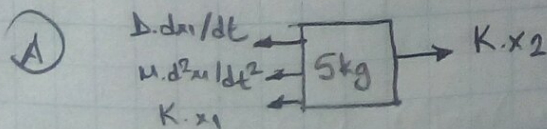 A
D.dx1/dt
M.d²x1/dt²
K.x1
5kg
K.x2